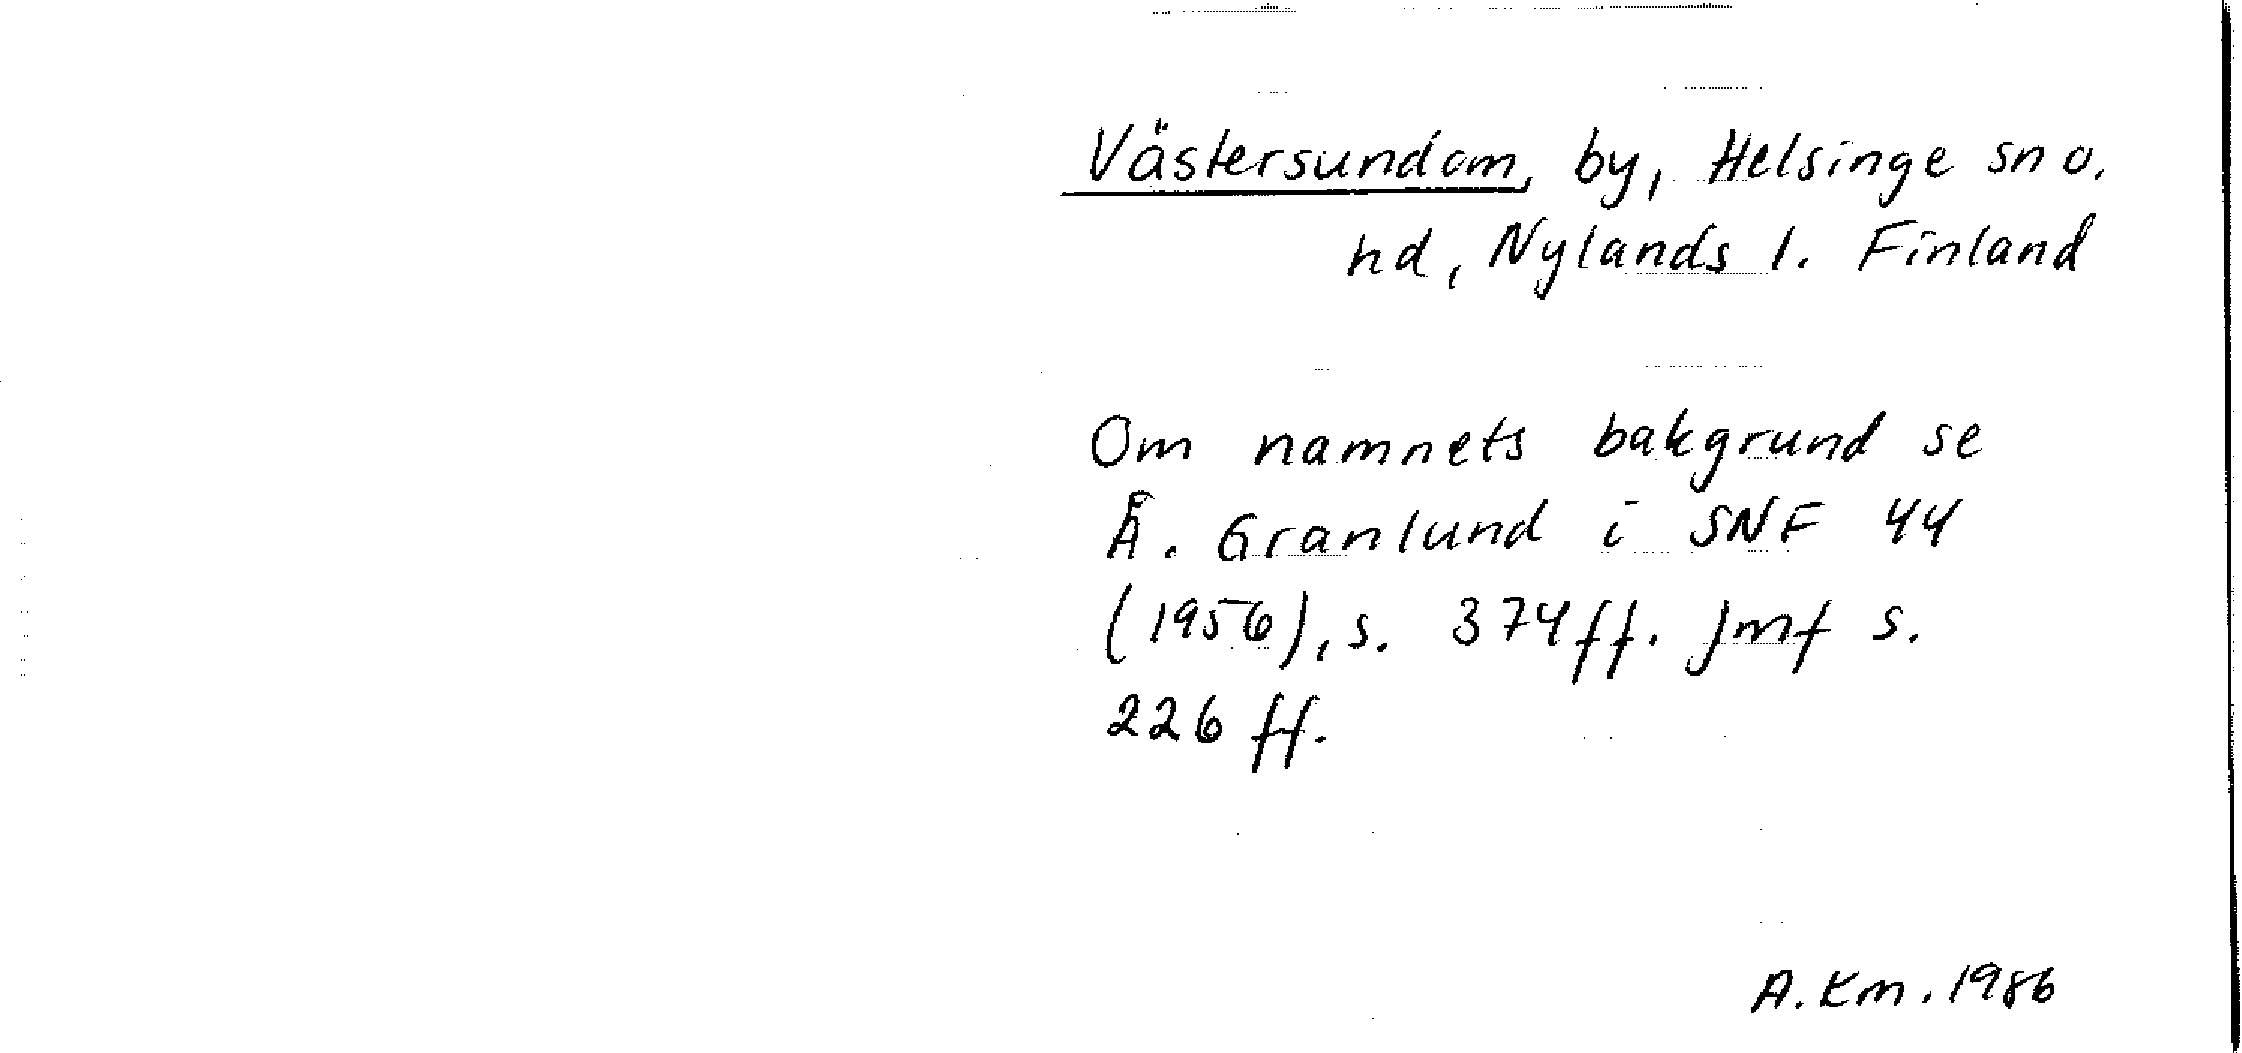 Västersundom, by, Helsinge sn o.
hd, Nylands l. Finland
Om namnets bakgrund se
Å. Granlund i SNF 44
(1956), s. 374ff. jmf s.
226 ff.
A. Km. 1986